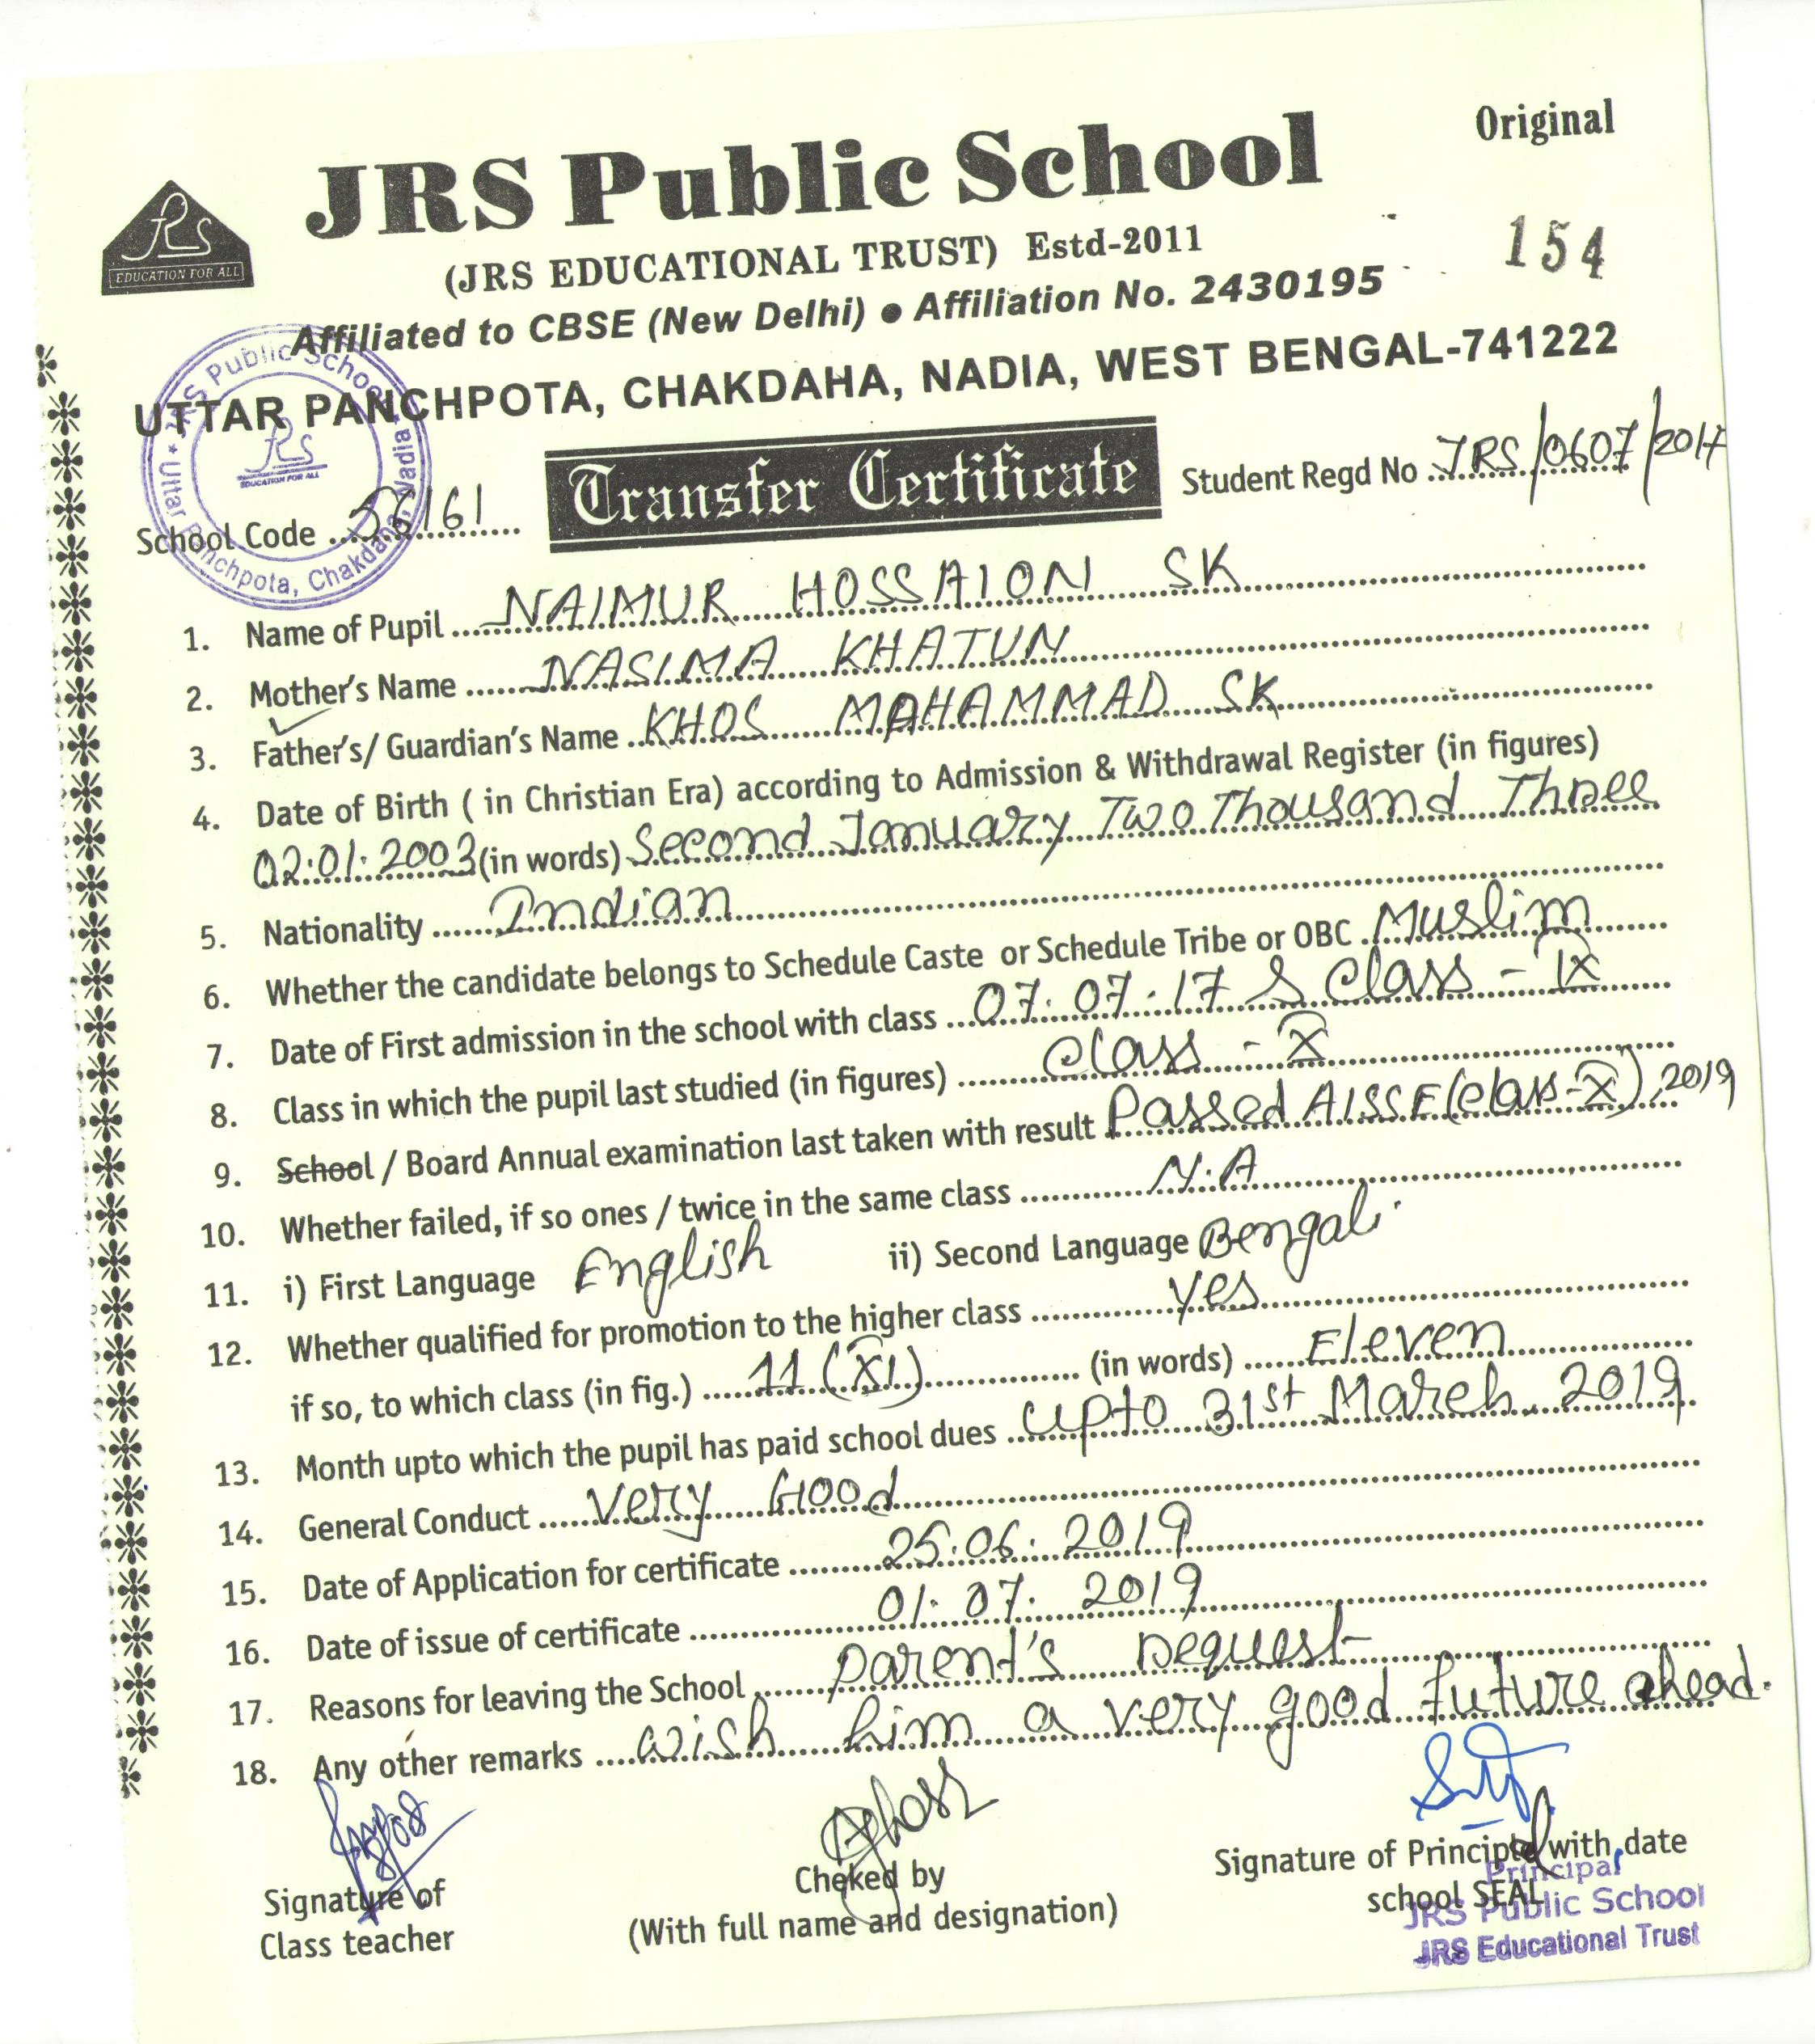 Original
JRS Public School
JRS
EDUCATION FOR ALL
(JRS EDUCATIONAL TRUST) Estd-2011
154
Affiliated to CBSE (New Delhi) ● Affiliation No. 2430195
UTTAR PANCHPOTA, CHAKDAHA, NADIA, WEST BENGAL-741222
JRS Public School
Uttar Panchpota, Chakdaha, Nadia
JRS
EDUCATION FOR ALL
School Code ........ Transfer Certificate Student Regd No ..JRS/0607/2017
1. Name of Pupil ....NAIMUR HOSSAION SK....
2. Mother's Name ......NASIMA KHATUN....
3. Father's/ Guardian's Name ..KHOS MAHAMMAD SK....
4. Date of Birth ( in Christian Era) according to Admission & Withdrawal Register (in figures)
02.01.2003 (in words) Second January Two Thousand Three
5. Nationality ......Indian....
6. Whether the candidate belongs to Schedule Caste or Schedule Tribe or OBC .Muslim....
7. Date of First admission in the school with class ...07.07.17 & Class - IX....
8. Class in which the pupil last studied (in figures) ......Class - X....
9. School / Board Annual examination last taken with result Passed AISSE (Class-X), 2019
10. Whether failed, if so ones / twice in the same class ......N.A....
11. i) First Language English ii) Second Language Bengali
12. Whether qualified for promotion to the higher class ......Yes....
if so, to which class (in fig.) .....11 (XI).... (in words) ......Eleven....
13. Month upto which the pupil has paid school dues ..upto 31st March, 2019.
14. General Conduct .....Very Good....
15. Date of Application for certificate ......25.06.2019....
16. Date of issue of certificate ......01.07.2019....
17. Reasons for leaving the School ......Parent's request....
18. Any other remarks ....Wish him a very good future ahead.
Signature of
Class teacher
Cheked by
(With full name and designation)
Signature of Principal with date
school SEAL
Principal
JRS Public School
JRS Educational Trust